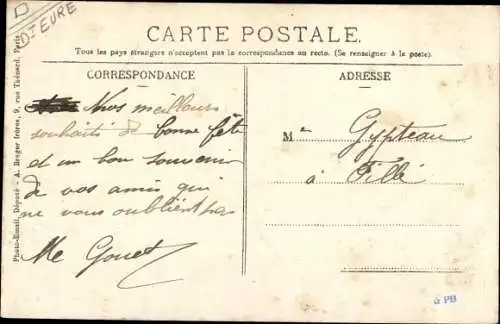 DT EURE
CARTE POSTALE
Tous les pays étrangers n'acceptent pas la correspondance au recto. (Se renseigner à la poste).
CORRESPONDANCE
Nos meilleurs
souhaits de bonne fête
et un bon souvenir
de vos amis qui
ne vous oublient pas
Me Gouet
ADRESSE
Me Gypteau
à Fillé
Photo-Émail, Déposé - A. Breger frères, 9, rue Thénard, Paris
6 PB